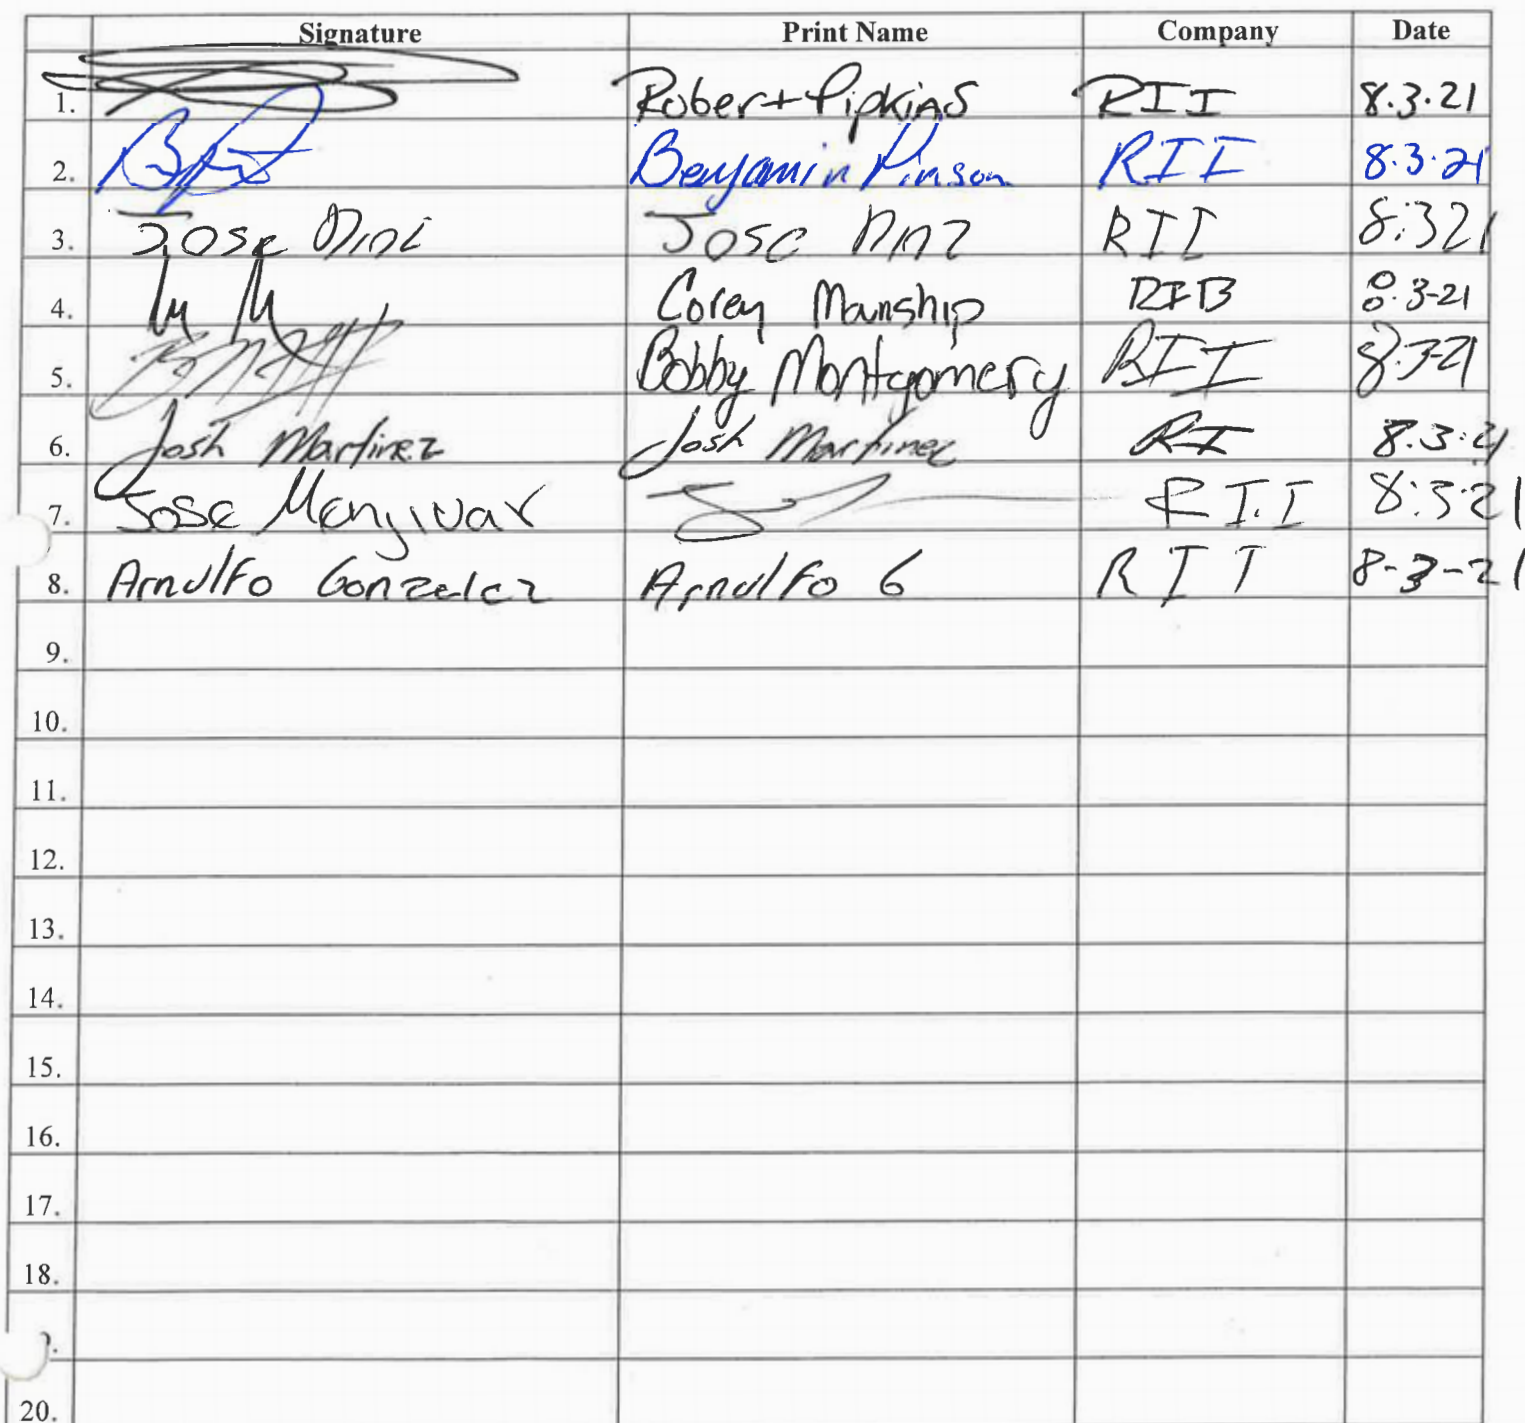 Signature Print Name Company Date
1. Robert Pipkins RII 8.3.21
2. Benjamin Pinson RII 8.3.21
3. Jose Jose RII 8.3.21
4. Corey Manship RIB 8.3-21
5. Bobby Montgomery RII 8.3-21
6. Josh Martinez Josh Martinez RI 8.3.21
7. Jose Menjivar RII 8.3.21
8. Arnulfo Gonzalez Arnulfo G RII 8-3-21
9.
10.
11.
12.
13.
14.
15.
16.
17.
18.
20.